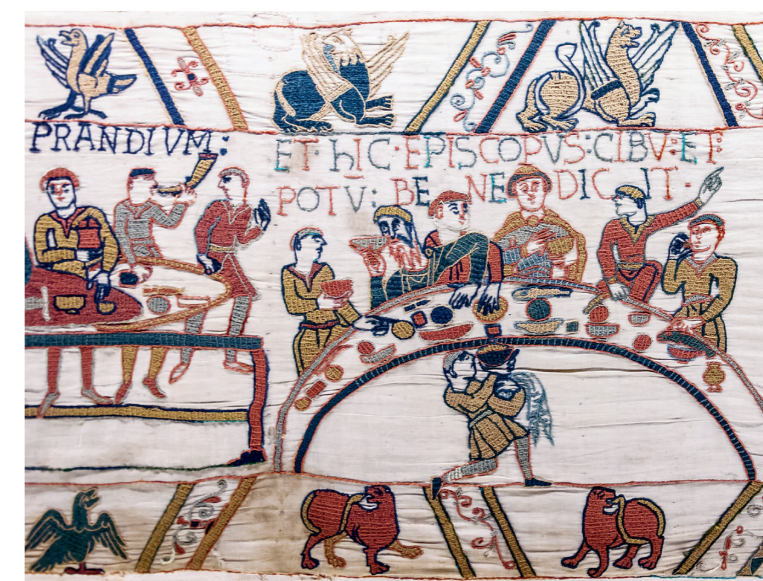 PRANDIVM:
ET· hIC· EPISCOPVS: CIBV: ET:
POTV: BE NE DIC IT·